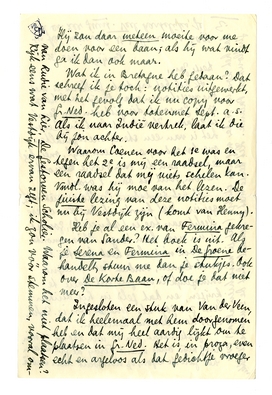 Hij zou daar meteen moeite voor me
doen voor een baan; als hij wat vindt
ga ik dan ook maar.
Wat ik in Bretagne heb gedaan? Dat
schreef ik je toch: notities uitgewerkt,
met het gevolg dat ik nu copy voor
Gr. Ned. heb voor tokenmst sept. a.s.
Als ik naar Indië vertrek, laat ik die
bij jou achter.
Waarom Coenen voor het 1e was en
tegen het 2e is mij een raadsel, maar
een raadsel dat mij niets schelen kan.
Vmdl. was hij moe van het lezen. De
juiste lezing van deze notities moet
nu bij Vestdijk zijn (komt van Henny).
Heb je al een ex. van Fermina gekre-
gen van Sander? Het boek is uit. Als
je Serena en Fermina in De Groene be-
handelt, stuur me dan je stukjes. Ook
over De Korte Baan, of doe je dat niet
meer?
Ingesloten een stuk van Van der Veen,
dat ik heelemaal met hem doorgenomen
heb en dat mij heel aardig lijkt om te
plaatsen in Gr. Ned. Het is in proza, even
echt en argeloos als dat gedichtje vroeger
van Rudie van Lier, De gestorven Soldaat. Waarom het niet plaatsen?
Kijk eens wat Vestdijk ervan zegt. Ik zou vóór stemmen, vooral om-